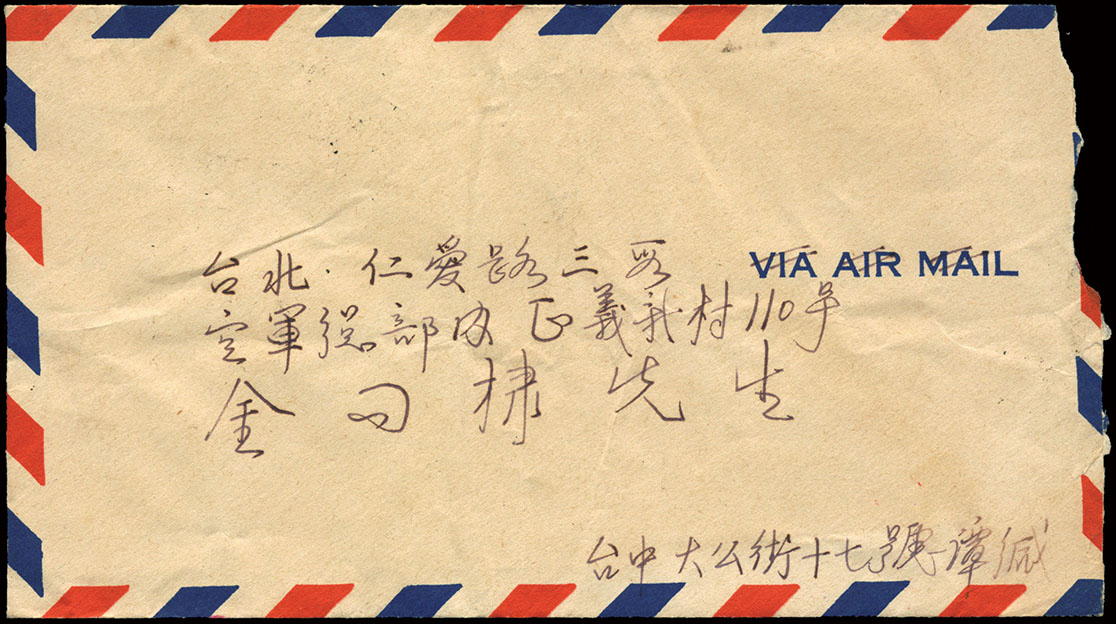 台北．仁愛路三段
VIA AIR MAIL
空軍總部內正義新村110号
金 棣先生
台中大公街十七號譚緘